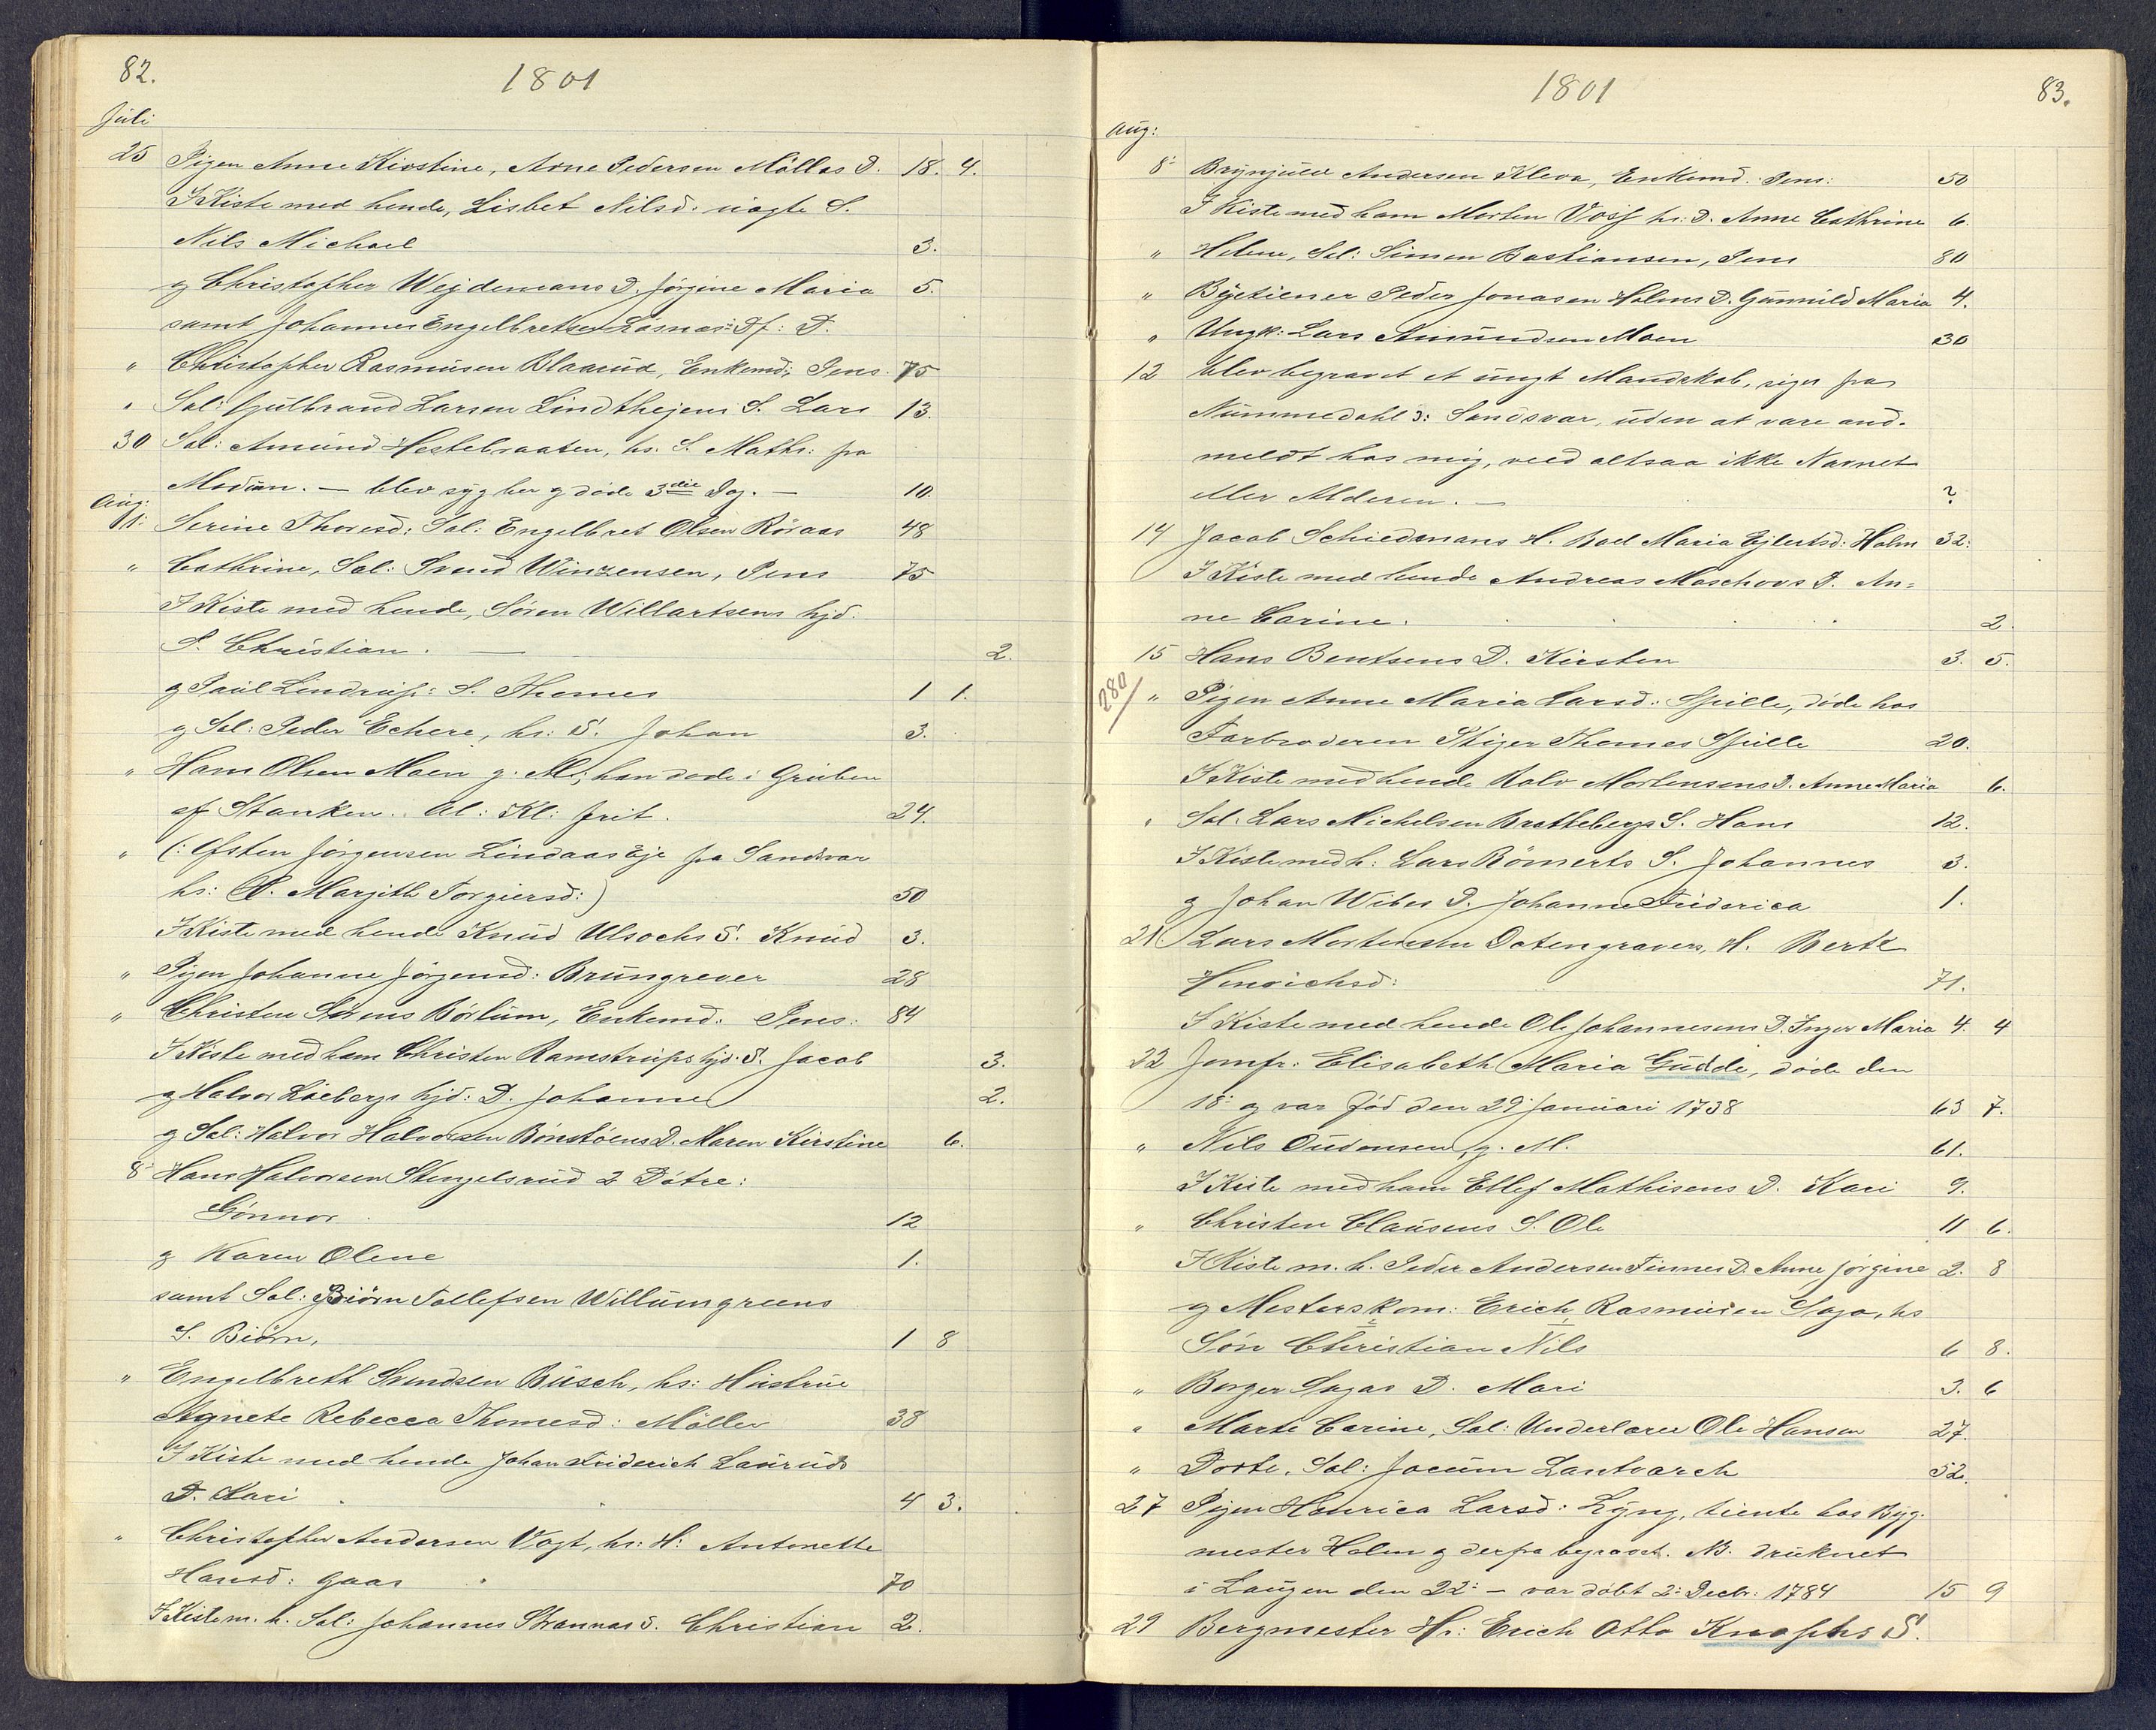 82.
1801
Juli
25 Pigen Anne Kirstine, Arne Pedersen Möllas D. 18. 4.
I Kiste med hende, Lisbet Nilsd: uägte S.
Nils Michael 3.
g Christopher Wejdemans D. Jørgine Maria 5.
samt Johannes Engelbretsen Løsnæs Df: D.
" Christopher Rasmusen Blaarud, Enkemd; Pens. 75
" Sal: Gulbrand Larsen Lindthejens S. Lars 13.
30 Sal: Amund Hestebraaten, hs. S. Maths: fra
Modum. — blev syg her g døde 3die Dag. — 10.
Aug:
1: Serine Thoresd: Sal: Engelbret Olsen Röraas 48
" Cathrine, Sal: Svend Winzensen, Pens 75
I Kiste med hende, Sören Willartsens hjd:
S. Christian. — 2.
g Paul Lindrup: S. Thomes 1 1.
g Sal: Peder Echere, hs: S. Johan 3.
" Hans Olsen Moen g. M; han døde i Gruben
af Stanken. Al: Kl: frit. 24.
" (: Ofsten Jørgensen Lindaas Eje fra Sandsvar
hs: H. Margith Torgiersd:) 50
I Kiste med hende Knud Ulsochs S. Knud 3.
" Pigen Johanne Jörgensd: Brungrever 28
" Christen Sørens Börlum, Enkemd. Pens: 84
I Kiste med ham Christen Ramstrups hjd. S. Jacob 3.
g Halvor Löebergs hjd: D. Johanne 2.
g Sal: Halvor Halvorsen Bönsköens D. Maren Kirstine 6.
8 Hans Halvorsen Stengelsrud 2 Døtre:
Gönnor 12
g Karen Olene 1.
samt Sal: Biörn Tollefsen Willumgreens
S. Biörn, 1 8
" Engelbreth Svendsen Busch, hs: Hustrue
Agnete Rebecca Thomesd: Möller 38
I Kiste med hende Johan Friderich Laüruds
D. Kari 4 3.
" Christopher Andersen Vogt, hs: H: Antonette
Hansd: Gaas 70
I Kiste m. h. Sal: Johannes Strannas S. Christian 2.
1801
83.
Aug:
8 Brynjulv Andersen Kleva, Enkemd. Pens: 50
I Kiste med ham Morten Voss hs: D. Anne Cathrine 6.
" Helene, Sal: Simen Bastiansen, Pens 80
" Byetiener Peder Jonasen Holms D. Gunnild Maria 4.
" Ungk: Lars Amundsen Moen 30
12 blev begravet et ungt Mandskab, siges fra
Nummedahl ɔ: Sandsvar, uden at vare and-
meldt hos mig, veed altsaa ikke Navnet
eller Alderen. — ?
14 Jacob Schiedmans H. Boel Maria Ejlertsd: Holm 32:
I Kiste med hende Andreas Moschovs D. An=
ne Carine. 2.
15 Hans Bentsens D. Kirsten 3. 5.
280
" Pigen Anne Maria Larsd: Spille, døde hos
Farbroderen Stiger Thomes Spille 20.
I Kiste med hende Rolv Mortensens D. Anne Maria 6.
" Sal. Lars Michelsen Brattebergs S. Hans 12.
I Kiste med h: Lars Römerts S. Johannes 3.
g Johan Wibes D. Johanne Friderica 1.
21 Lars Mortensen Dotengravers, H. Berte
Henrichsd: 71.
I Kiste med hende Ole Johannesens D. Inger Maria 4. 4
22 Jomfr: Elisabeth Maria Gudde, døde den
18: g var fød den 29: Januari 1738 63 7.
" Nils Oudensen, g. M. 61.
I Kiste med ham Ellef Mathisens D. Kari 9.
" Christen Clausens S. Ole 11 6.
I Kiste m. h. Peder Andersen Finnes D. Anne Jørgine 2. 8
g Mesterskom: Erich Rasmusen Saga, hs
Søn Christian Nils 6 8.
" Borger Sagas D. Mari 3. 6
" Marte Carine, Sal: Underlærer Ole Hansen 27.
" Dorte, Sal: Jocum Lantvarch 52.
27 Pigen Henrica Larsd: Lyng, tiente hos Byg-
mester Holm g derfra begravet. NB. druknet
i Laugen den 22: — var døbt 2: Decbr: 1784 15 9
29 Bergmester Hr: Erich Otto Knophs S.